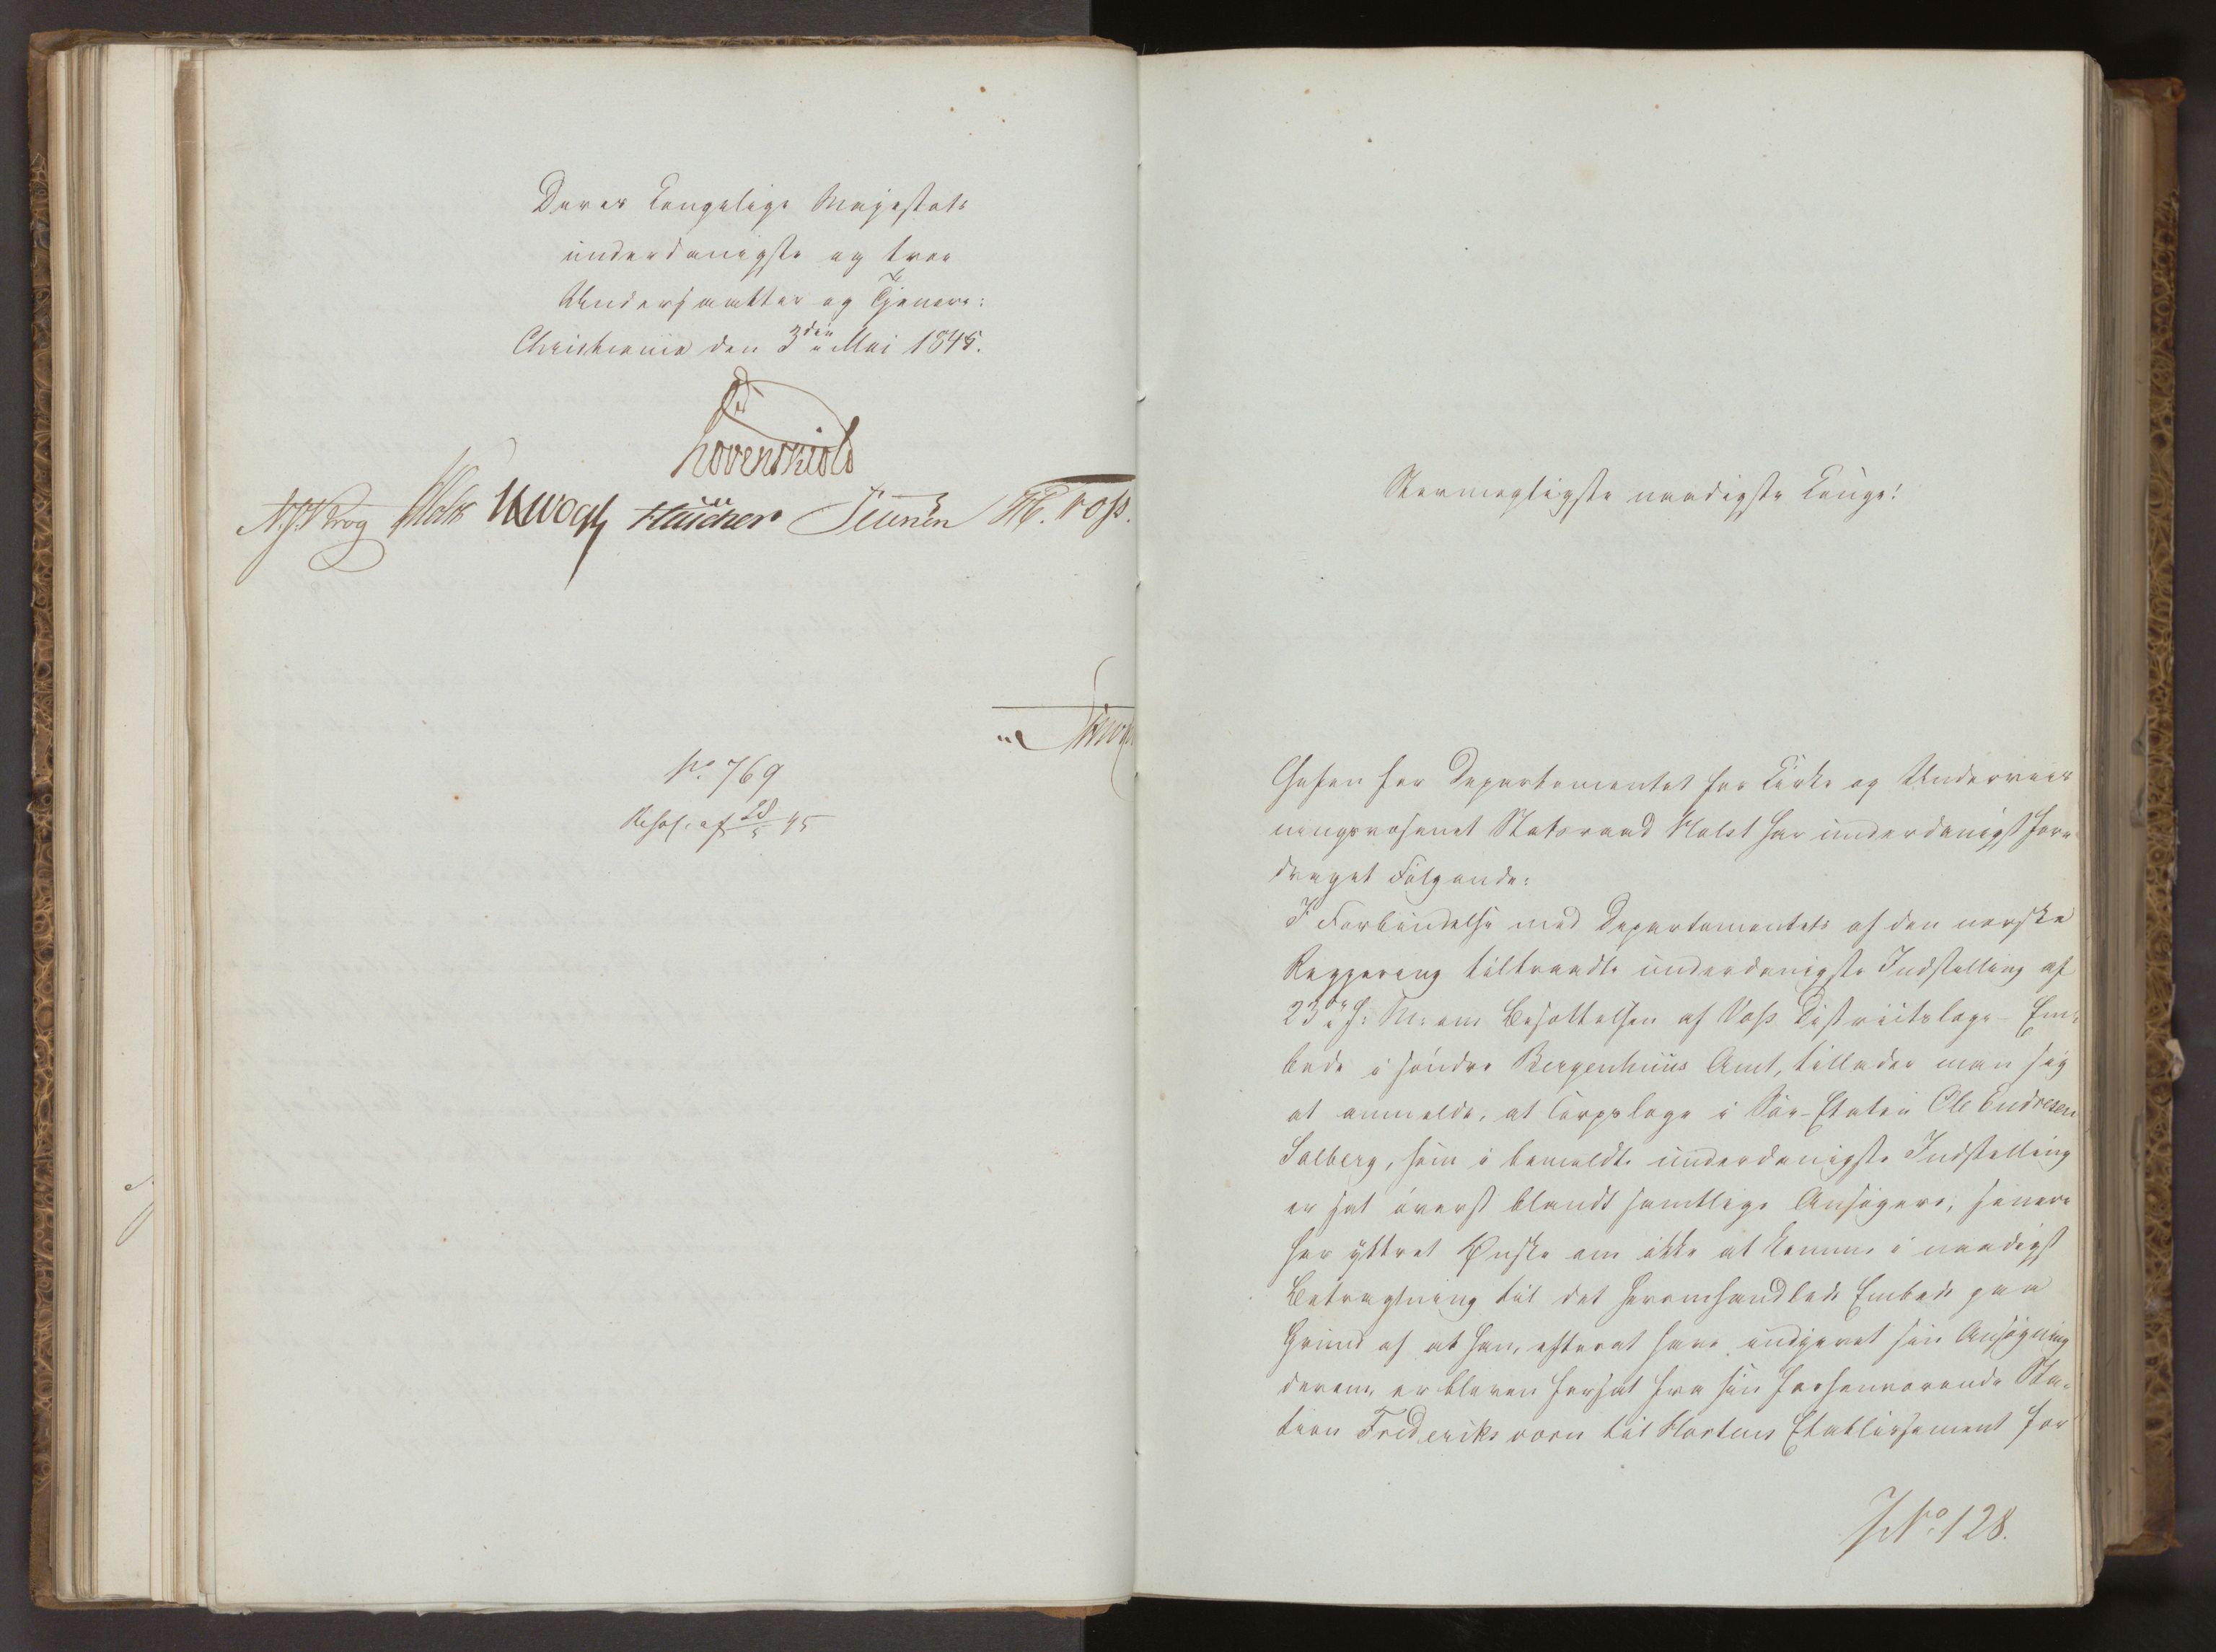 Deres Kongelige Majestæts
underdanigste og troe
Undersaatter og Tjenere:
Christiania den 3die Mai 1845.
Løvenskiold
N. J. Krog Holst Vogh Fleischer Sibbern Voss.
No 769
Resol. af 28/5 45
Stormægtigste naadigste Konge!
Chefen for Departementet for Kirke og Underviis
ningsvæsenet Statsraad Holst har underdanigst fore¬
draget Følgende:
I Forbindelse med Departementets af den norske
Regjering tiltraadte underdanigste Indstilling af
23de f: M: om Besættelsen af Voss Districtslæge-Em¬
bede i søndre Bergenhuus Amt, tillader man sig
at anmelde, at Corpslæge i Søe-Etaten Ole Endresen
Solberg, som i bemeldte underdanigste Indstilling
er sat øverst blandt samtlige Ansøgere, senere
har yttret Ønske om ikke at komme i naadigst
Betragtning til det heromhandlede Embede paa
Grund af at han, efterat have indgivet sin Ansøgning
derom, er bleven forsat fra sin forhenværende Sta¬
tion Frederiksværn til Hortens Etablissement for
J. No 128.